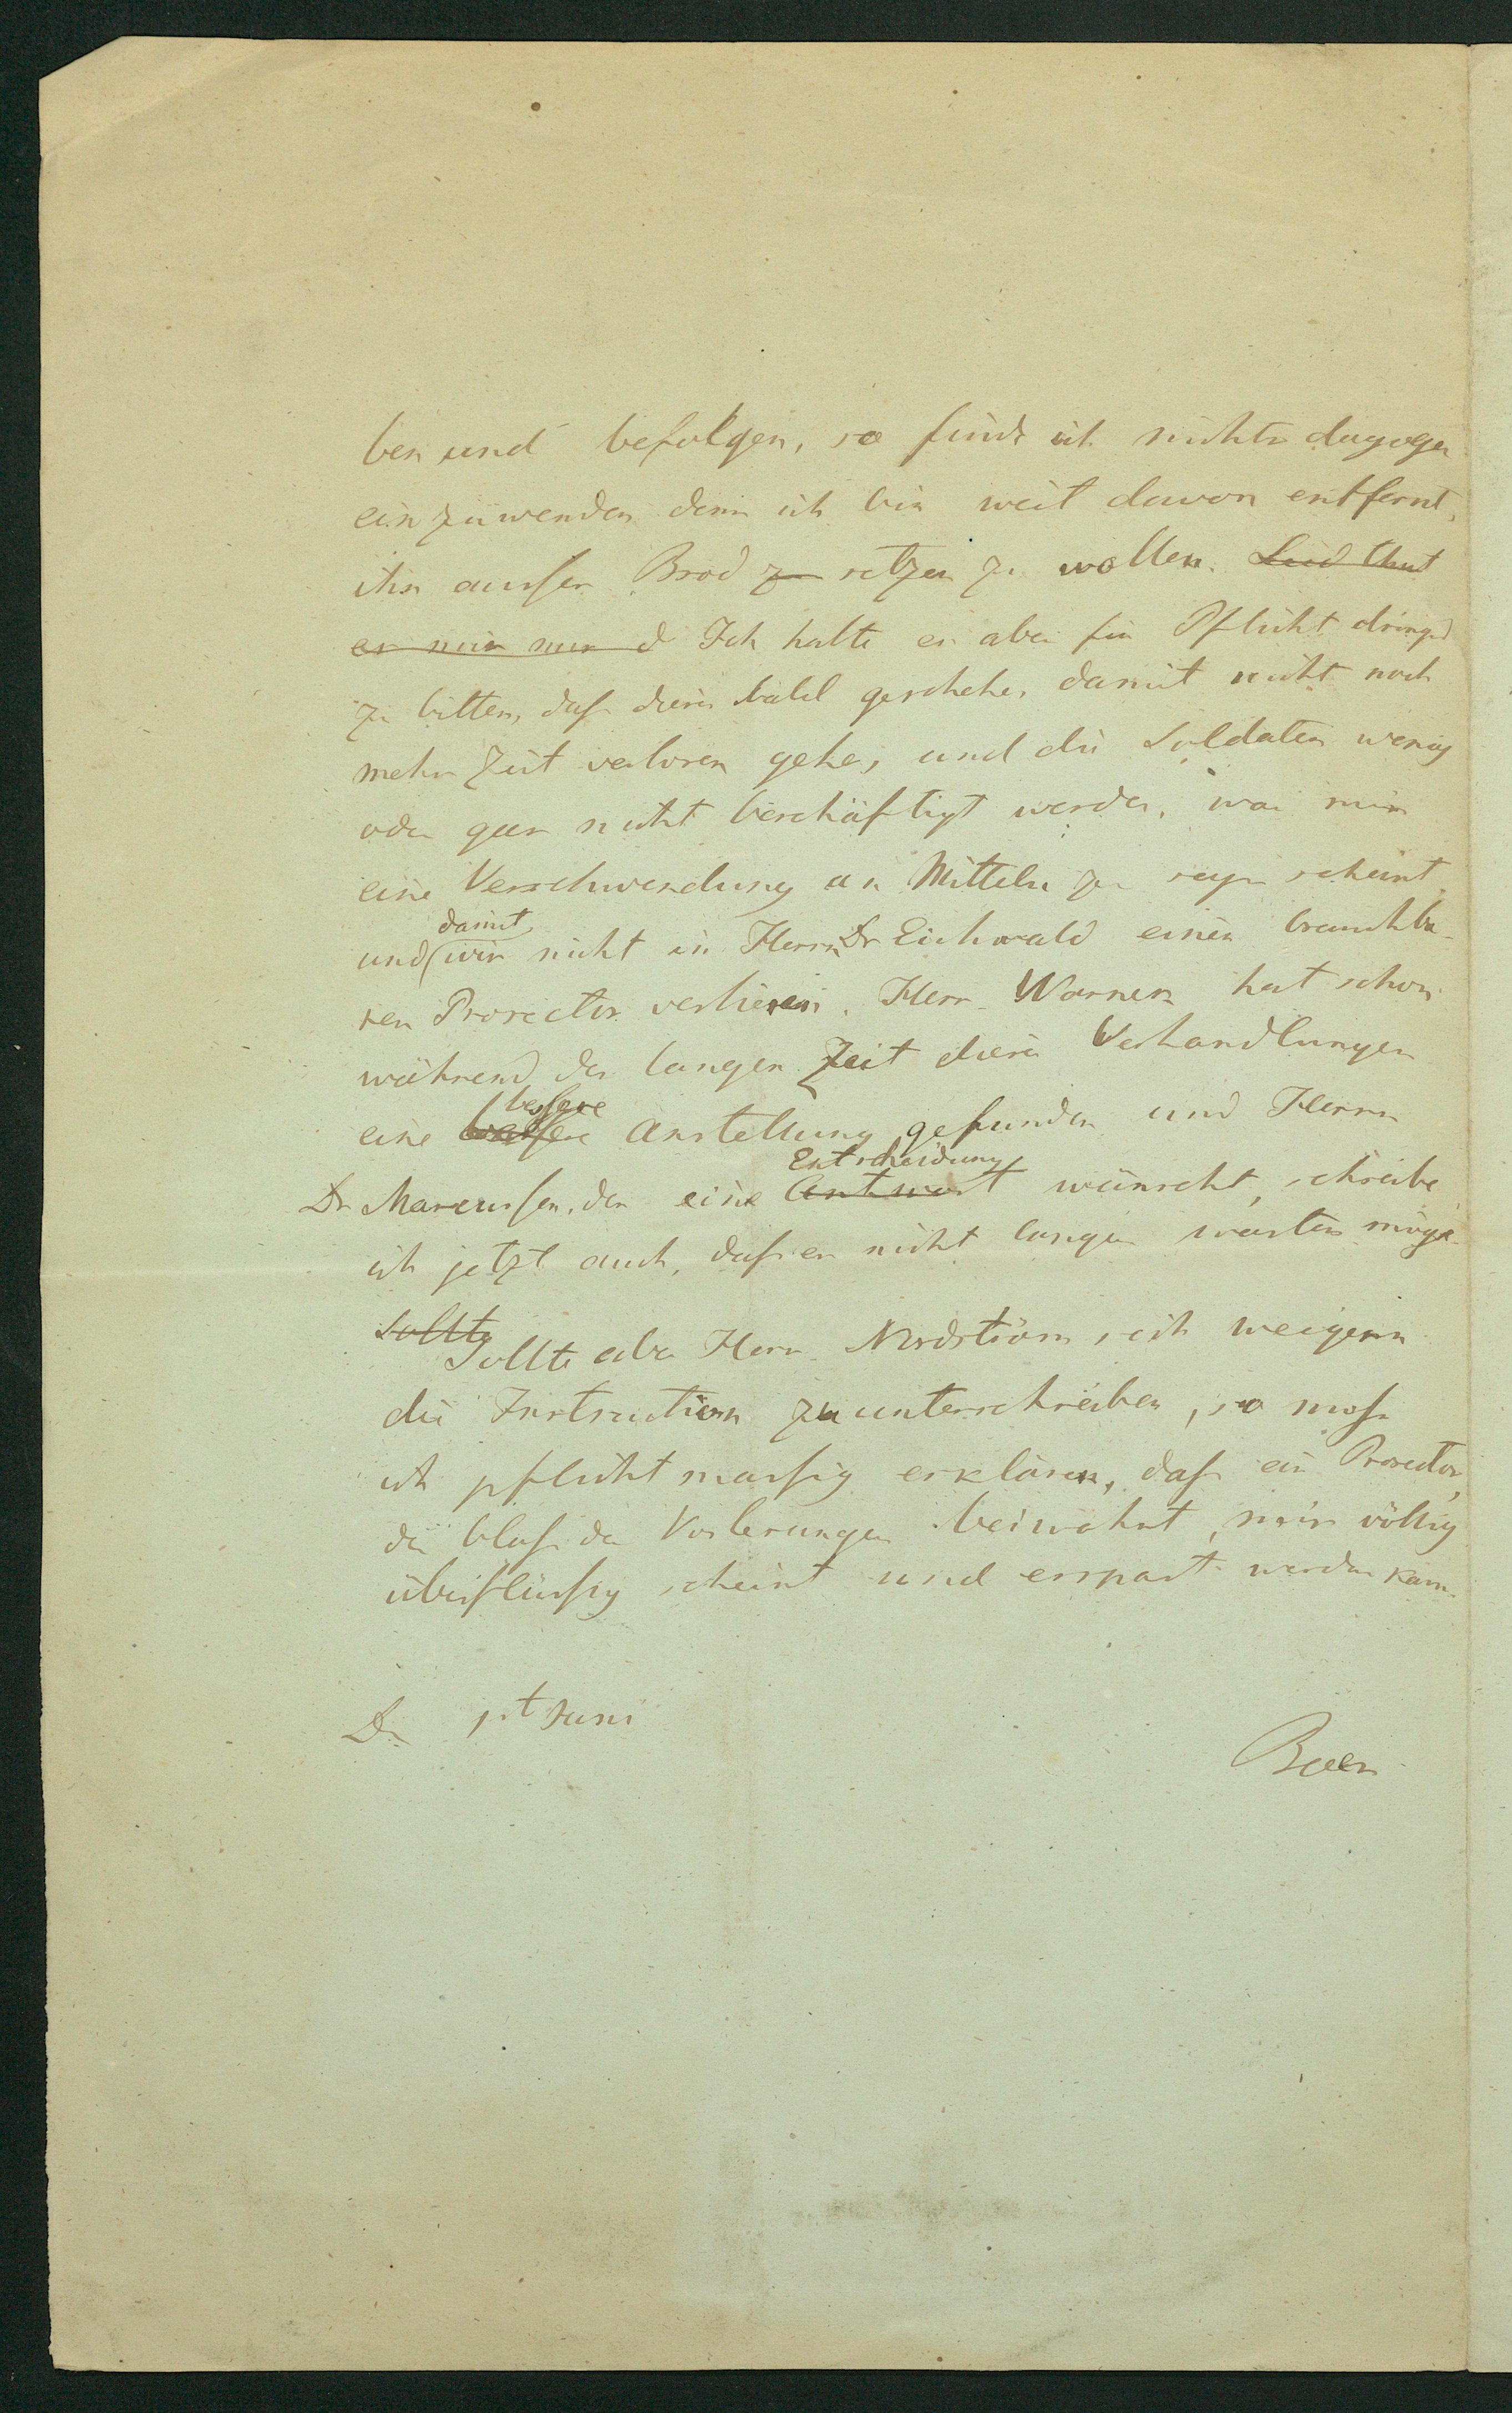 ben und befolgen, so finde ich nichts dagegen
einzuwenden denn ich bin weit davon entfernt,
ihn ausser Brod zu setzen zu wollen. Leid thut
es mir nur d Ich halte es aber für Pflicht dringend
zu bitten, dass dieses bald geschehe, damit nicht noch
mehr Zeit verloren gehe, und die Soldaten wenig
oder gar nicht beschäftigt werden, was mir
eine Verschwendung an Mitteln zu seyn scheint,
damit
und wir nicht in Herrn Dr Eichwald einen brauchba-
ren Prosector verlieren. Herr Warnek hat schon
während der langen Zeit dieser Verhandlungen
bessere
eine Anstellung gefunden und Herrn
Entscheidung
Dr Marcussen, der eine Antwort wünscht, schreibe
ich jetzt auch, dass er nicht länger warten möge.
Sollte
Sollte aber Herr Nordström sich weigern
die Instruction zu unterschreiben, so muss
ich pflichtmassig erklären, dass ein Prosector,
der bloss den Vorlesungen beiwohnt, mir völlig
überflüssig scheint und erspart werden kann.
D. 1st Juni
Baer